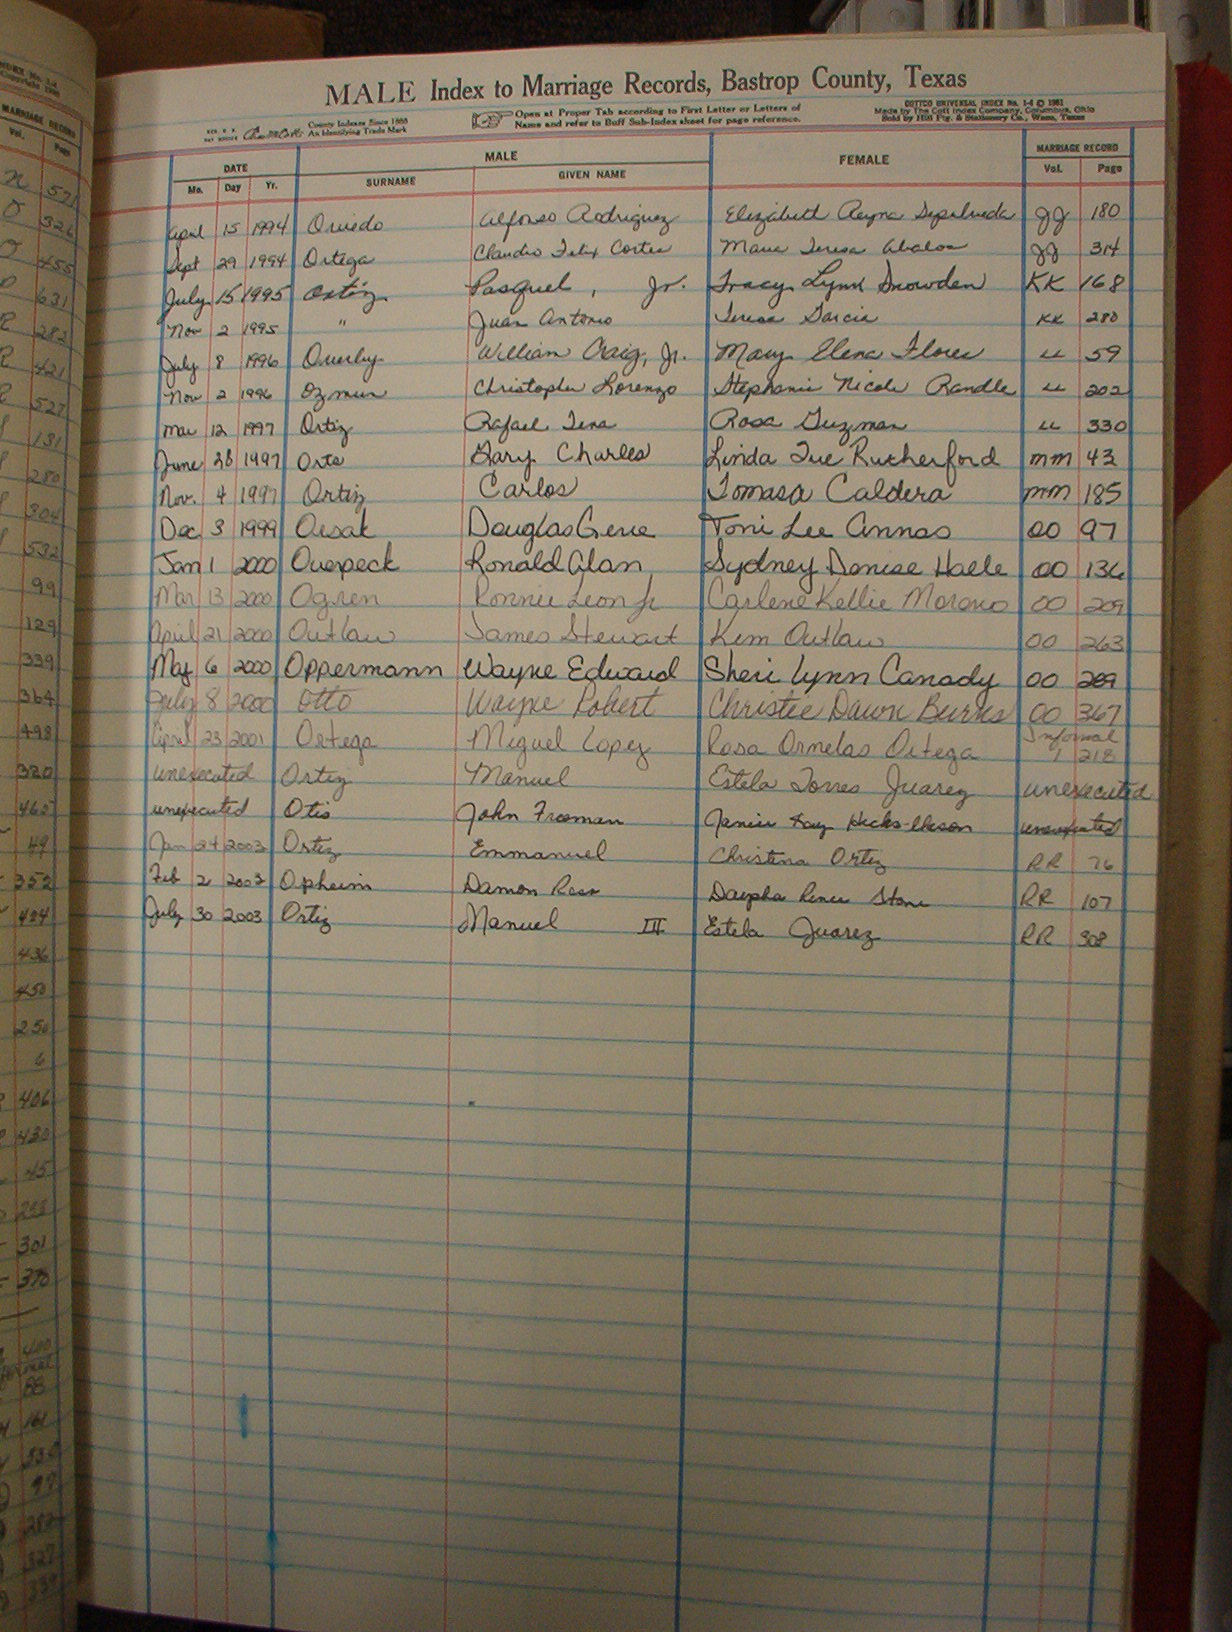 MALE Index to Marriage Records, Bastrop County, Texas
County Indexes Since 1888
An Identifying Trade Mark
Open at Proper Tab according to First Letter or Letters of
Name and refer to Buff Sub-Index sheet for page reference.
COTTCO UNIVERSAL INDEX No. 1-4 © 1981
Made by The Cott Index Company, Columbus, Ohio
Sold by Hill Ptg. & Stationery Co., Waco, Texas
DATE MALE FEMALE MARRIAGE RECORD
Mo. Day Yr. SURNAME GIVEN NAME Vol. Page
April 15 1994 Oviedo Alfonso Rodriguez Elizabeth Reyna Sepulveda JJ 180
Sept 29 1994 Ortega Claudio Felix Cortes Maria Teresa Abalos JJ 314
July 15 1995 Ortiz Pasqual, Jr. Tracy Lynn Snowden KK 168
Nov 2 1995 " Juan Antonio Teresa Garcia KK 280
July 8 1996 Overby William Craig, Jr. Mary Elena Flores LL 59
Nov 2 1996 Ozmun Christopher Lorenzo Stephanie Nicole Randle LL 202
Mar 12 1997 Ortiz Rafael Tena Rosa Guzman LL 330
June 28 1997 Orts Gary Charles Linda Sue Rutherford MM 43
Nov. 4 1997 Ortiz Carlos Tomasa Caldera MM 185
Dec 3 1999 Orsak Douglas Gene Toni Lee Annas OO 97
Jan 1 2000 Overpeck Ronald Alan Sydney Denise Halle OO 136
Mar 13 2000 Ogren Ronnie Leon Jr Carlene Kellie Moreno OO 209
April 21 2000 Outlaw James Stewart Kim Outlaw OO 263
May 6 2000 Oppermann Wayne Edward Sheri Lynn Canady OO 289
July 8 2000 Otto Wayne Robert Christie Dawn Burns OO 367
April 23 2001 Ortega Miguel Lopez Rosa Ornelas Ortega Informal 1 218
unexecuted Ortiz Manuel Estela Torres Juarez unexecuted
unexecuted Otis John Freeman Janice Kay Hicks unexecuted
Jan 24 2003 Ortiz Emmanuel Christina Ortiz RR 76
Feb 2 2003 Opheim Damon Ross Renee Stone RR 107
July 30 2003 Ortiz Manuel III Estela Juarez RR 308